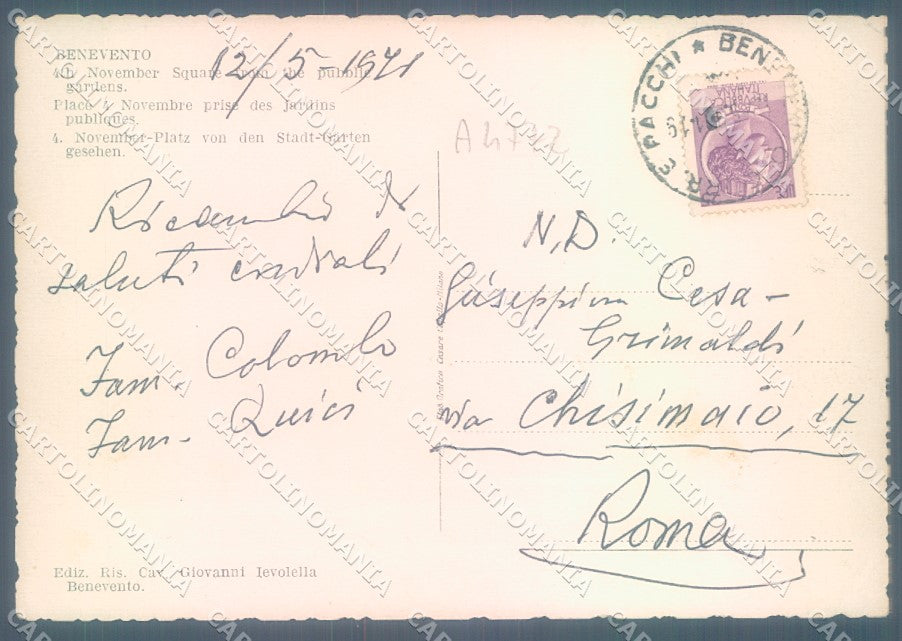 BENEVENTO
4th November Square from the public
gardens.
Place 4 Novembre prise des Jardins
publiques.
4. November-Platz von den Stadt-Garten
gesehen.
12/5-1971
A4772
BENEVENTO
E PACCHI ★
N.D.
Ricambio
saluti cordiali
Fam. Colombo
Fam. Quici
Giuseppina Cesa-
Grimaldi
via Chisimaio, 17
Roma
Ediz. Ris. Cav. Giovanni Ievolella
Benevento.
CARTOLINOMANIA